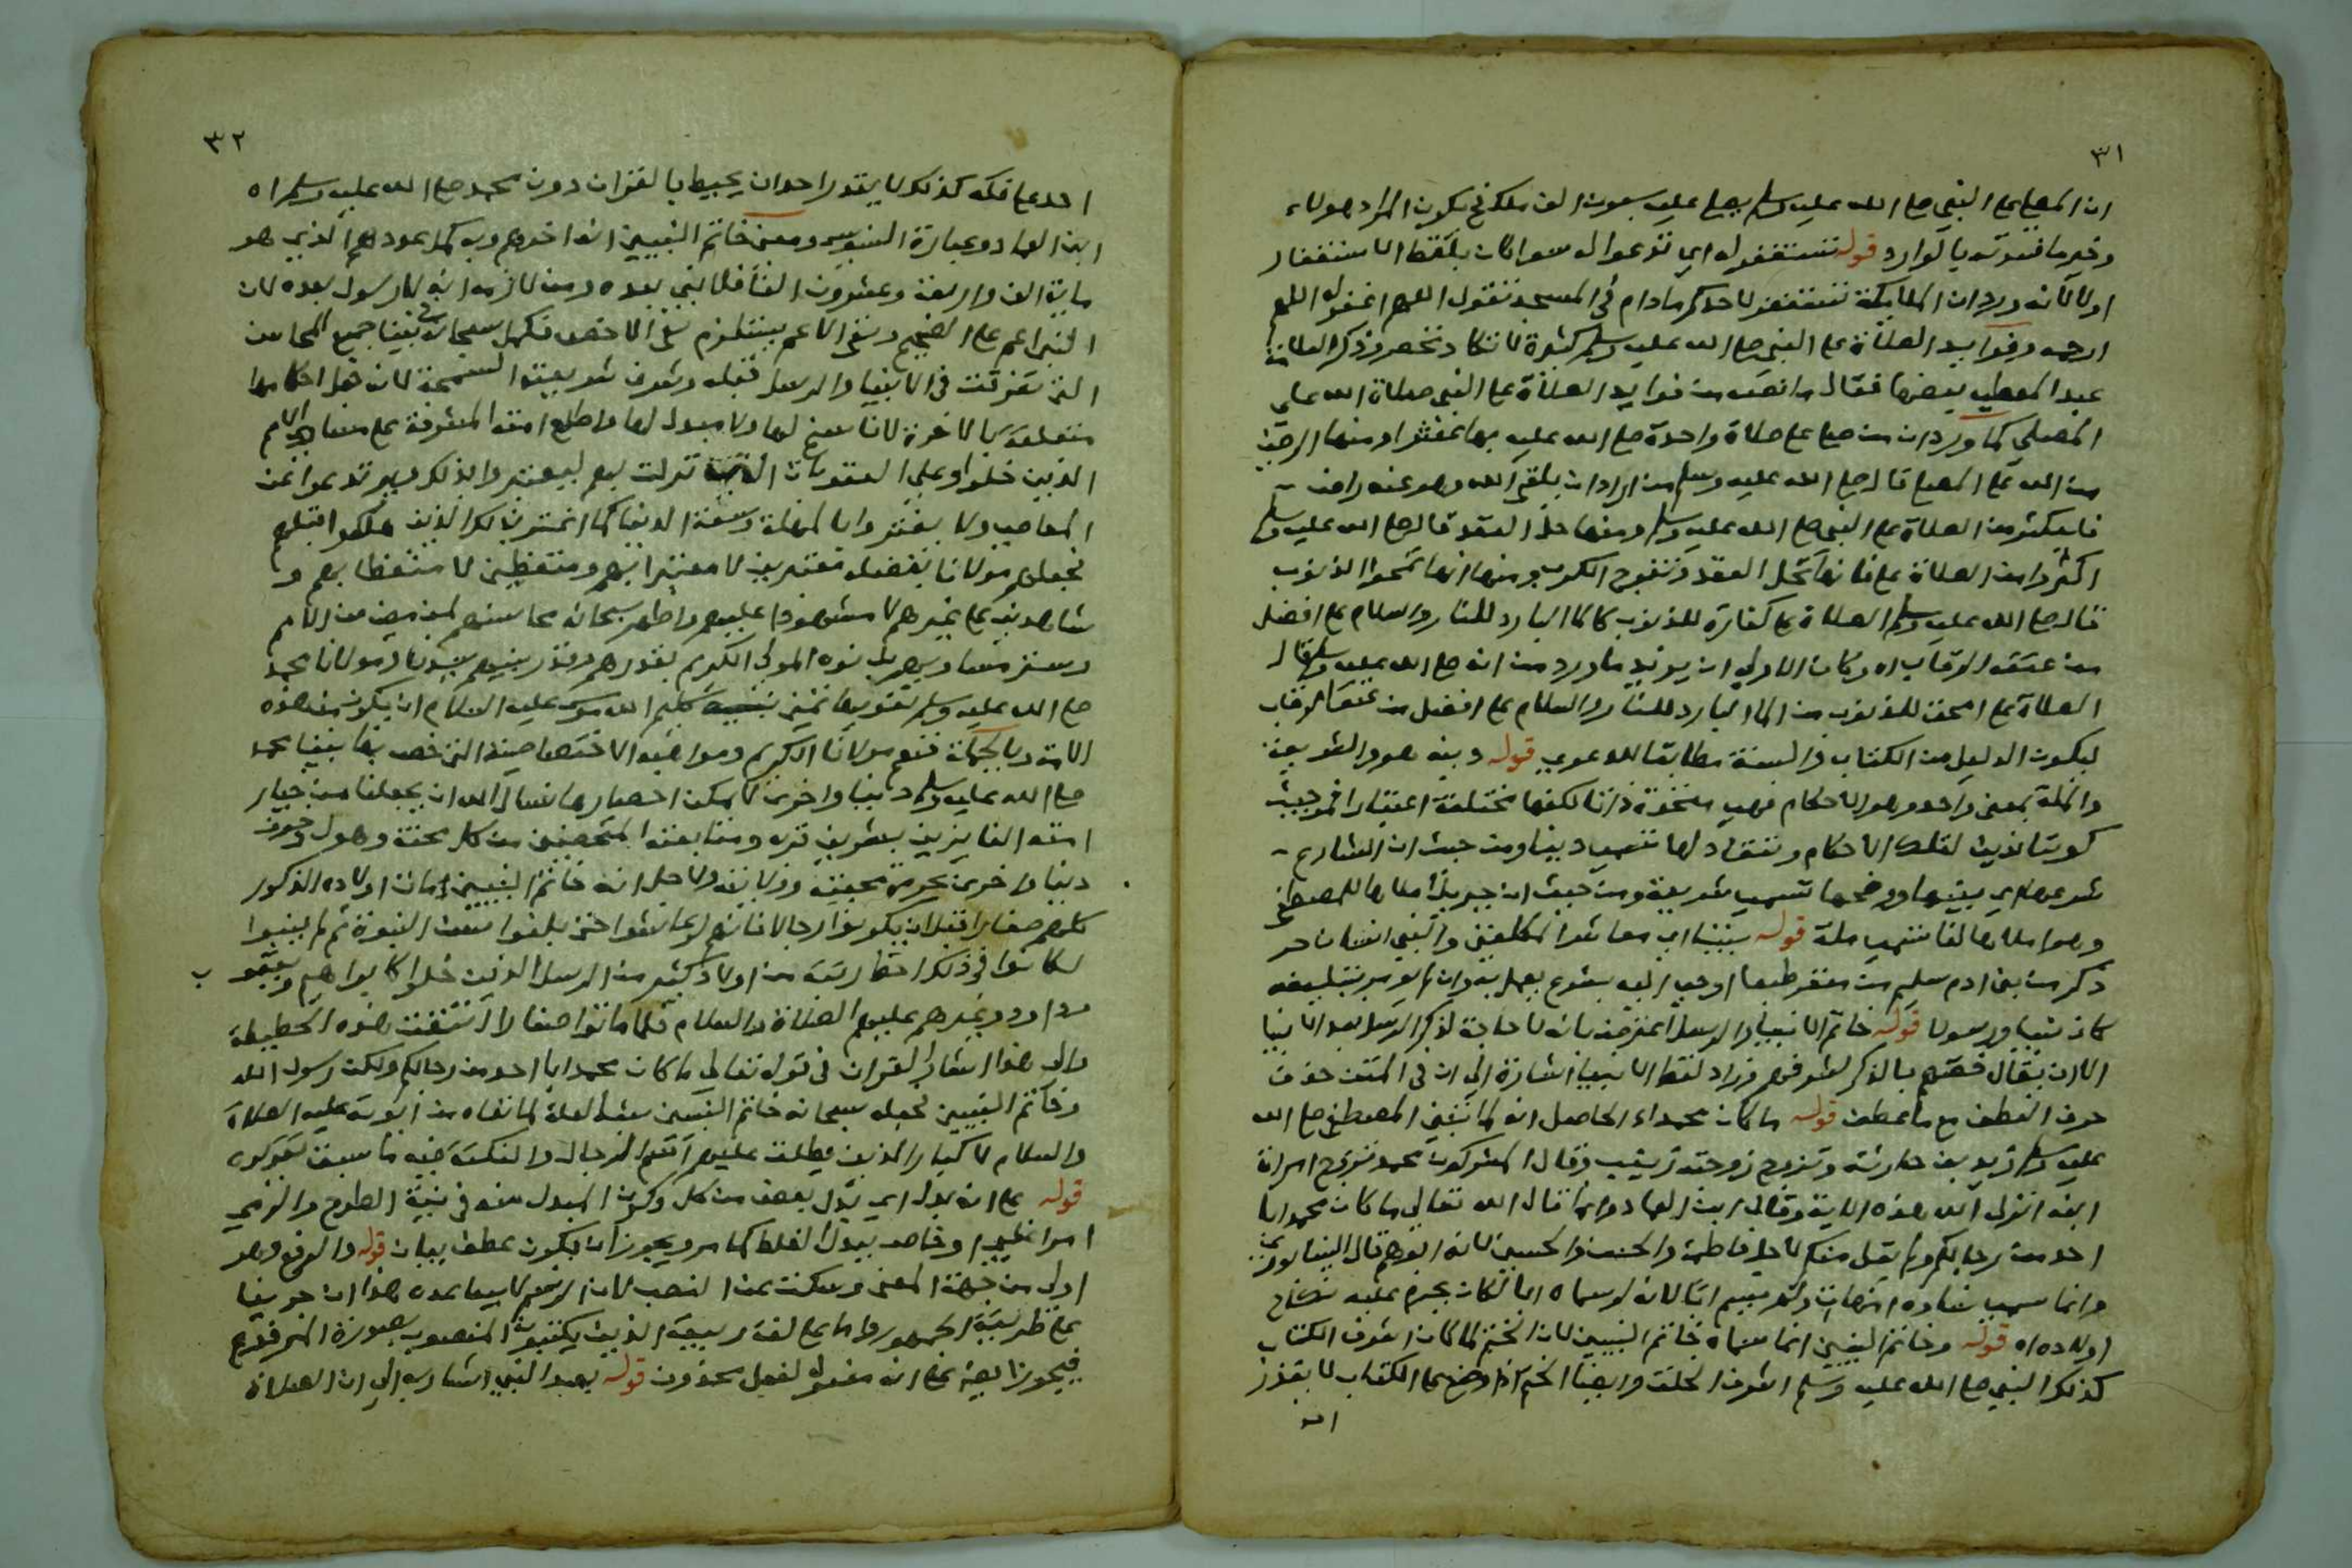 ٣١
ان المصلي على النبي صلى الله عليه وسلم يصلي عليه سبعون الف ملك فيكون المراد هولاء
وخير ما فسرته بالوارد قوله تستغفر له اي تدعوا له سوا كان بلفظ الاستغفار
او لا لانه ورد ان الملايكة تستغفر لاحدكم ما دام في المسجد تقول اللهم اغفر له اللهم
ارحمه وفوايد الصلاة على النبي صلى الله عليه وسلم كثيرة لا تكاد تنحصر وذكر العلامة
عبد المعطي بعضها فقال من فوايد الصلاة على النبي صلاة الله على
المصلي كما ورد ان من صلى علي صلاة واحدة صلى الله عليه بها عشرا ومنها الرضى
من الله على المصلي قال صلى الله عليه وسلم من اراد ان يلقى الله وهو عنه راض
فليكثر من الصلاة على النبي صلى الله عليه وسلم ومنها حل العقد قال صلى الله عليه وسلم
اكثروا من الصلاة علي فانها تحل العقد وتفرج الكرب ومنها انها تمحوا الذنوب
قال صلى الله عليه وسلم الصلاة علي كفارة للذنوب كالما البارد للنار والسلام علي افضل
من عتق الرقاب اه وكان الاولى ان يزيد ما ورد من انه صلى الله عليه وسلم قال
الصلاة علي امحق للذنوب من الما البارد للنار والسلام علي افضل من عتق الرقاب
ليكون الدليل من الكتاب والسنة مطابقا للدعوي قوله دينه هو والشريعة
والملة بمعنى واحد وهو الاحكام فهي متحدة ذاتا لكنها مختلفة اعتبارا فمن حيث
كوننا ندين لتلك الاحكام وننقاد لها تسمى دينا ومن حيث ان الشارع
شرعها اي بينها ووضحها تسمى شريعة ومن حيث ان جبريل املاها للمصطفى
وهو املاها لنا تسمى ملة قوله نبينا اي معاشر المكلفين والنبي انسان حر
ذكر من بني ادم سليم من منفر طبعا اوحي اليه بشرع يعمل به وان لم يومر بتبليغه
كان نبيا ورسولا قوله خاتم الانبيا والرسل اعترضه بانه لا حاجة لذكر الرسل بعد الانبيا
الا ان يقال خصهم بالذكر لشرفهم وزاد لفظ الانبيا اشارة الى ان في المتن حذف
حرف العطف مع ما عطف قوله ما كان محمد اه الحاصل انه لما تبنى المصطفى صلى الله
عليه وسلم زيد بن حارثة وتزوج زوجته زينب وقال المشركون محمد تزوج امراة
ابنه انزل الله هذه الاية وقال ابن العماد وانما قال الله تعالى ما كان محمد ابا
احد من رجالكم ولم يقل منكم لاجل فاطمة والحسن والحسين لانه ابوهم قال النيسابوري
وانما سمى نساءه امهات ولم يسم ابا لانه لو سماه ابا لكان يحرم عليه نكاح
اولاده اه قوله وخاتم النبيين انما سماه خاتم النبيين لان الختم لما كان اشرف الكتاب
كذلك النبي صلى الله عليه وسلم اشرف الخلق وايضا الختم اذا وضع على الكتاب لا يقدر
احد
٣٢
احد على فكه كذلك لا يقدر احد ان يحيط بالقران دون محمد صلى الله عليه وسلم اه
ابن العماد وعبارة السنوسي ومعنى خاتم النبيين انه اخرهم وبه كمل عددهم الذي هو
ماية الف واربعة وعشرون الفا فلا نبي بعده ومن لازمه انه لا رسول بعده لان
النبي اعم على الصحيح ونفي الاعم يستلزم نفي الاخص فكمل سبحانه في نبينا جميع المحاسن
التي تفرقت في الانبيا والرسل قبله وشرف شريعته السمحة لان جعل احكامها
متعلقة بالاخرة لا ناسخ لها ولا مبدل لها واطلع امته المشرفة على مساوي الامم
الذين خلوا وعلى العقوبات التي نزلت بهم ليعتبروا بذلك ويرتدعوا عن
المعاصي ولا يغتروا بالمهلة وسعة الدنيا كما اغتر بذلك الذين هلكوا قبلهم
فجعلهم مولانا بفضله معتبرين لا معتبرا بهم ومتعظين لا متعظا بهم و
شاهدين على غيرهم لا مشهودا عليهم واظهر سبحانه محاسنهم لمن مضى من الامم
وستر مساويهم بل نوه المولى الكريم بقدرهم وقدر نبيهم سيدنا ومولانا محمد
صلى الله عليه وسلم تنويها تمنى بسببه كليم الله موسى عليه السلام ان يكون من هذه
الامة وبالجملة فنعم مولانا الكريم ومواهبه الاختصاصية التي خص بها نبينا محمد
صلى الله عليه وسلم دنيا واخرى لا يمكن احصارها نسال الله ان يجعلنا من خيار
امته الفايزين بشريف قربه ومتابعته المتحصنين من كل محنة وهول وخوف
دنيا واخرى بحرمة محبته وولايته ولاجل انه خاتم النبيين مات اولاده الذكور
كلهم صغارا قبل ان يكونوا رجالا فانهم لو عاشوا حتى بلغوا سن النبوة ثم لم ينبوا
لكانوا في ذلك احط رتبة من اولاد كثير من الرسل الذين خلوا كابراهيم ويعقوب
وداود وغيرهم عليهم الصلاة والسلام فلما ماتوا صغارا انتفت هذه الحطيطة
والى هذا اشار القران في قوله تعالى ما كان محمد ابا احد من رجالكم ولكن رسول الله
وخاتم النبيين فجعل سبحانه خاتم النبيين شبه العلة لما نفاه من ابوته عليه الصلاة
والسلام لاكبار الذين يطلق عليهم اسم الرجال والنكتة فيه ما سبق تقريره
قوله على انه بدل اي بدل بعض من كل وكون المبدل منه في نية الطرح والرمي
امر اغلبي او خاص ببدل الغلط كما مر ويجوز ان يكون عطف بيان قوله والرفع وهو
اولى من جهة المعنى وسكت عن النصب لان الرسم لا يساعده هذا ان جرينا
على طريقة الجمهور واما على لغة ربيعة الذين يكتبون المنصوب بصورة المرفوع
فيجوز نصبه على انه مفعول لفعل محذوف قوله بعد النبي اشار به الى ان الصلاة